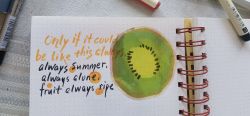 Only if it could
be like this always
always summer,
always alone,
fruit always ripe